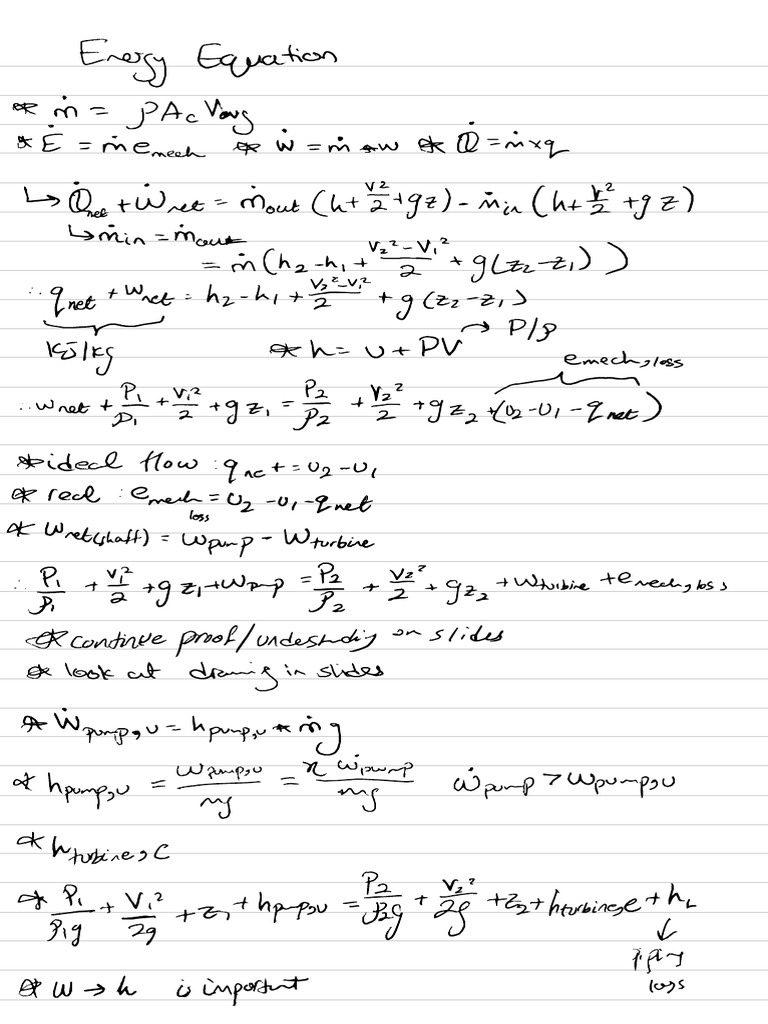 Energy Equation
* ṁ = ρAcVavg
* Ė = ṁemech * Ẇ = ṁ*w * Q̇ = ṁ×q
↳ Q̇net + Ẇnet = ṁout (h + V²/2 + gz) - ṁin (h + V²/2 + gz)
↳ ṁin = ṁout
= ṁ(h2 - h1 + (V2² - V1²)/2 + g(z2 - z1))
∴ qnet + wnet = h2 - h1 + (V2² - V1²)/2 + g(z2 - z1)
kJ/kg * h = u + PV → P/ρ
emech,loss
∴ wnet + P1/ρ1 + V1²/2 + gz1 = P2/ρ2 + V2²/2 + gz2 + (u2 - u1 - qnet)
* ideal flow : qnet = u2 - u1
* real : emech loss = u2 - u1 - qnet
* wnet(shaft) = wpump - wturbine
∴ P1/ρ1 + V1²/2 + gz1 + wpump = P2/ρ2 + V2²/2 + gz2 + wturbine + emech,loss
* continue proof/understanding on slides
* look at drawing in slides
* Ẇpump,u = hpump,u * ṁg
* hpump,u = wpump,u/mg = η ẇpump/mg ẇpump > wpump,u
* hturbine,e
* P1/ρ1g + V1²/2g + z1 + hpump,u = P2/ρ2g + V2²/2g + z2 + hturbine,e + hL
↓
piping
loss
* w → h is important